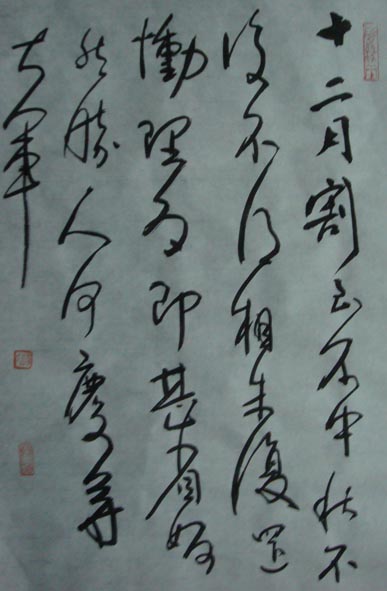 十二月割至不中秋不
復不得相未復還
慟理為即甚省如
然勝人何慶等
大軍